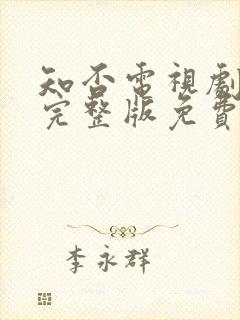 知否電視劇
完整版免費
李永群